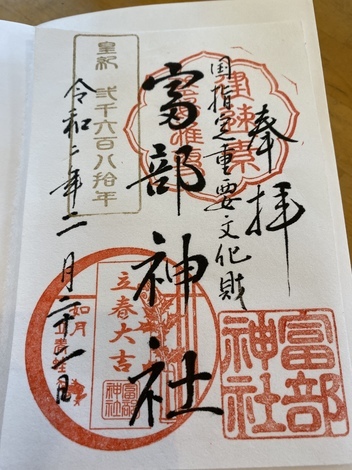 奉拝
建速素
国指定重要文化財
富部神社
富部神社
皇紀 弐千六百八拾年
令和二年二月二十一日
立春大吉
富部神社
如月